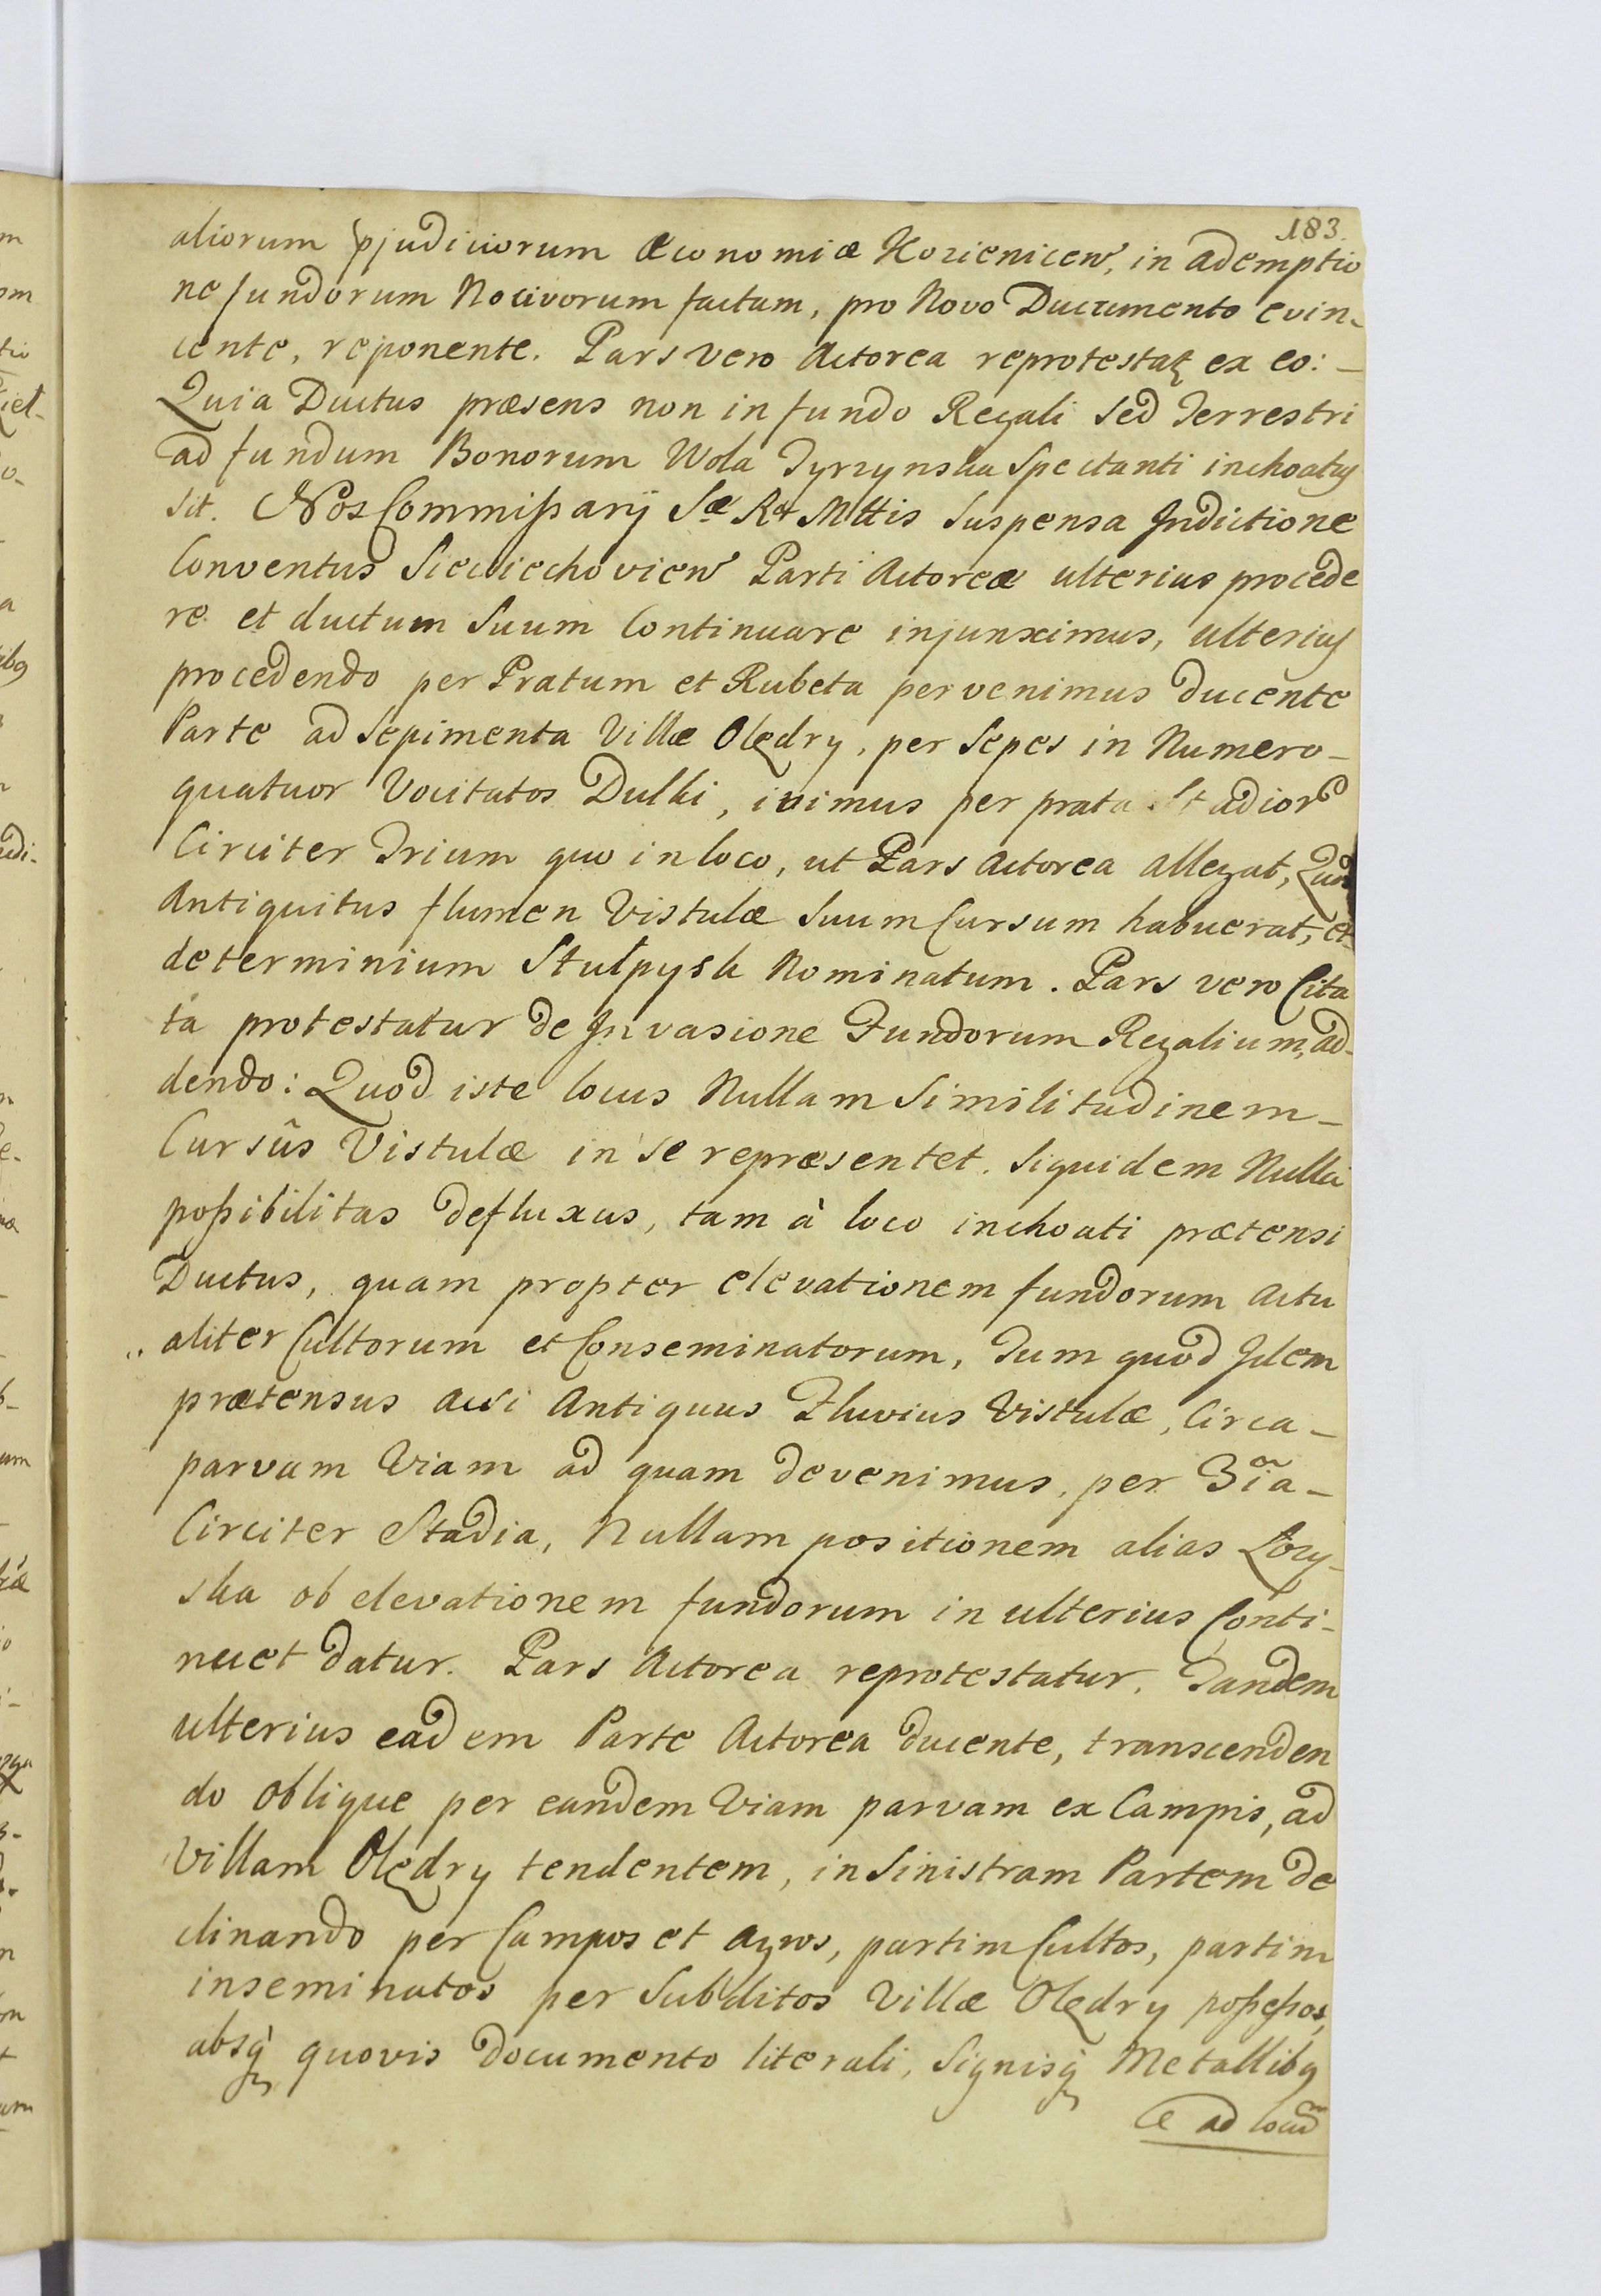 183.
aliorum pjudiciorum Œconomiæ Kozienicen, in ademptio
ne fundorum Nocivorum factam, pro Novo Documento evin-
cente, reponente. Pars vero Actorea reprotestatʒ ex eo: –
Quia Ductus præsens non in fundo Regali sed Terrestri
ad fundum Bonorum Wola Tyrzynska Spectanti inchoatꝰ
sit. Nos Commißarij Sæ Ræ Mttis suspensa Indictione
Conventus Sieciechovien Parti Actoreæ ulterius procede
re et ductum Suum Continuare injunximus, ulteriꝰ
procedendo per Pratum et Rubeta pervenimus ducente
Parte ad Sepimenta Villæ Olędry, per Sepes in Numero –
quatuor Vocitatos Dulki, ivimus per prata Stadior
Circiter Trium quo in loco, ut Pars Actorea allegat, Quod
Antiquitus flumen Vistulæ Suum Cursum habuerat, et
determinium Stulpysk Nominatum. Pars vero Cita
ta protestatur de Invasione Fundorum Regalium, ad-
dendo: Quod iste locus Nullam Similitudinem –
Cursûs Vistulæ in se repræsentet. Siquidem Nulla
poßibilitas defluxus, tam à loco inchoati prætensi
Ductus, quam propter elevationem fundorum actu
aliter Cultorum et Conseminatorum, Tum quod Idem
prætensus acsi Antiquus Fluvius Vistulæ, Circa –
parvam Viam ad quam devenimus, per 3ia –
Circiter Stadia, Nullam positionem alias Łozy-
ska ob elevationem fundorum in ulterius Conti-
nuet datur. Pars Actorea reprotestatur. Tandem
ulterius eadem Parte Actorea ducente, transcenden
do oblique per eandem Viam parvam ex Campis, ad
Villam Olędry tendentem, in Sinistram Partem de
clinando per Campos et agros, partim Cultos, partim
inseminatos per Subditos Villæ Olędry poßeßos,
absq quovis documento literali, Signisq Metallibꝰ
ad locũ